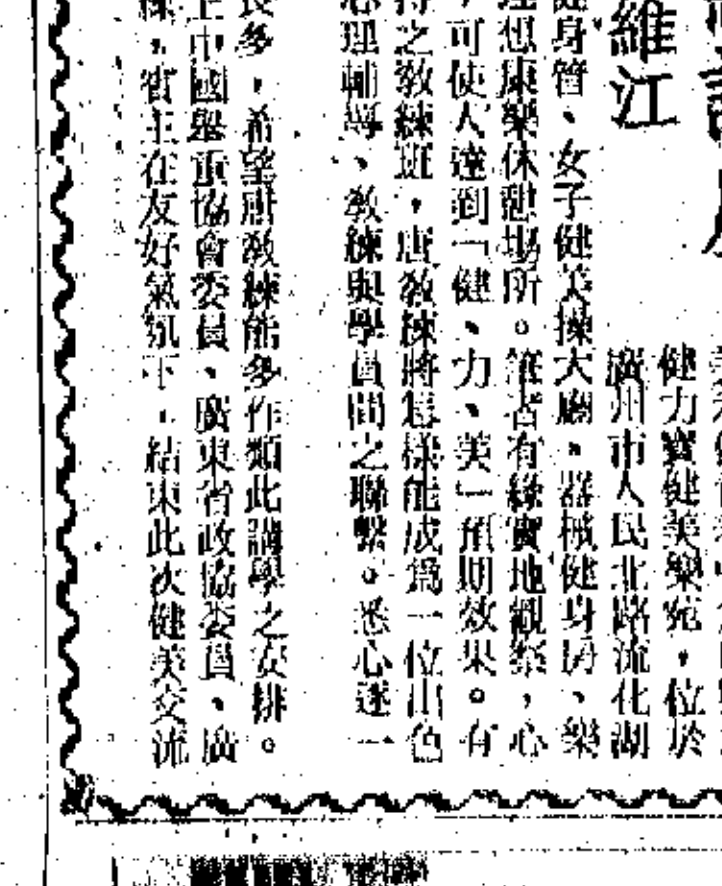 維江
健力寶健美樂苑，位於
廣州市人民北路流花湖
健身管、女子健美操大廳、器械健身房、樂
理想康樂休憩場所。筆者有緣實地觀察，心
，可使人達到「健、力、美」預期效果。有
持之教練班，唐教練將怎樣能成為一位出色
心理輔導、教練與學員間之聯繫。悉心逐一
良多，希望唐教練能多作類此講學之安排。
中國舉重協會委員、廣東省政協委員、廣
，賓主在友好氣氛下，結束此次健美交流